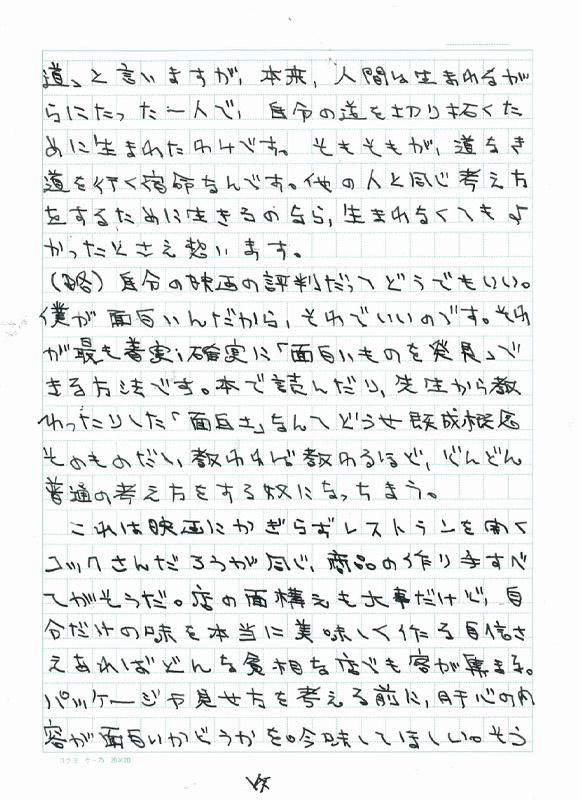 道」と言いますが、本来、人間は生まれなが
らにたった一人で、自分の道を切り拓くた
めに生まれたわけです。そもそもが、道なき
道を行く宿命なんです。他の人と同じ考え方
をするために生きるのなら、生まれなくてもよ
かったとさえ思います。
(略)自分の映画の評判だってどうでもいい。
僕が面白いんだから、それでいいのです。それ
が最も着実・確実に「面白いものを発見」で
きる方法です。本で読んだり、先生から教
わったりした「面白さ」なんてどうせ既成概念
そのものだし、教われば教わるほど、どんどん
普通の考え方をする奴になっちまう。
これは映画にかぎらずレストランを開く
コックさんだろうが同じ、商品の作り手すべ
てがそうだ。店の面構えも大事だけど、自
分だけの味を本当に美味しく作る自信さ
えあればどんな貧相な店でも客が集まる。
パッケージや見せ方を考える前に、肝心の内
容が面白いかどうかを。吟味してほしい。そう
コクヨ ケー75 20×20